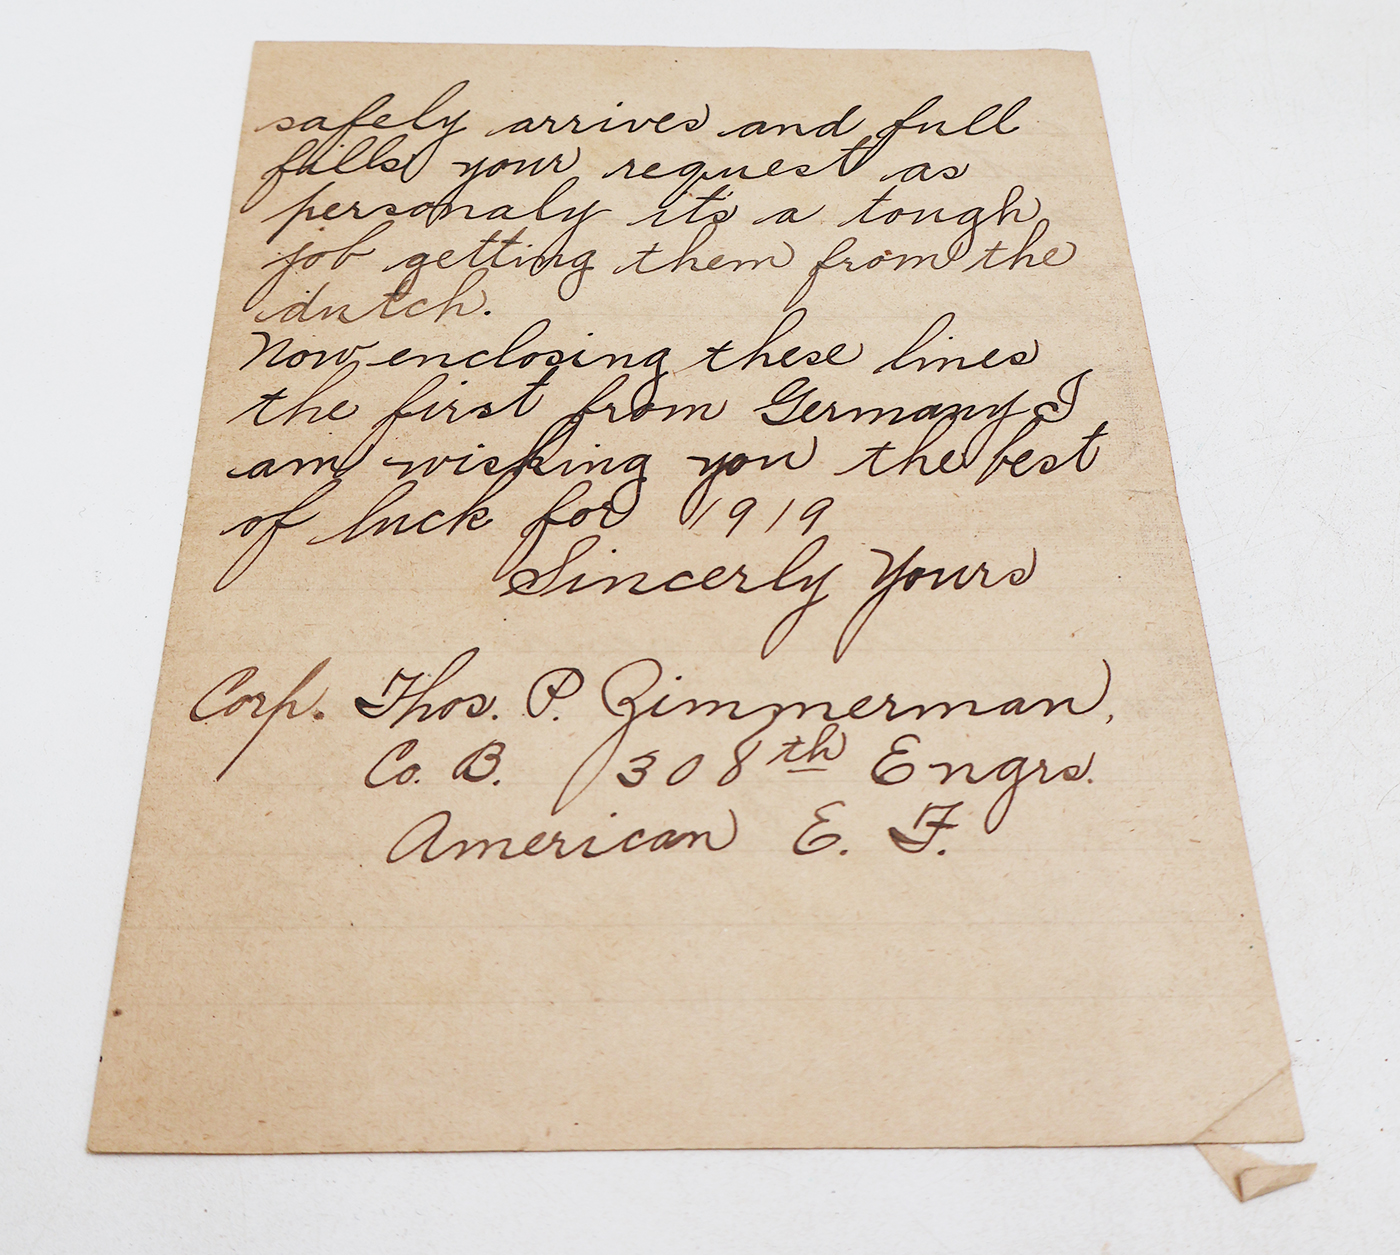 safely arrives and full
fills your request as
personaly it's a tough
job getting them from the
dutch.
Now enclosing these lines
the first from Germany I
am wishing you the best
of luck for 1919
Sincerly Yours
Corp. Thos. P. Zimmerman,
Co. B. 308th Engrs.
American E. F.